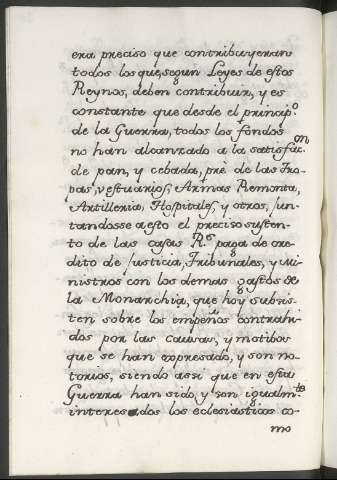 era preciso que contribuyeran
todos los que, segun Leyes de estos
Reynos, deben contribuir, y es
constante que desde el princip.o
de la Guerra, todos los fondos
no han alcanzado a la satisfac.on
de pan, y cebada, prè de las Tro
pas, vestuarios, Armas Remonta,
Artilleria, Hospitales, y otros, jun-
tandosse a esto el preciso susten-
to de las casas R.s paga de cre
dito de Justicia, Tribunales, y Mi-
nistros con los demas gastos de
la Monarchia, que hoy subsis-
ten sobre los empeños contrahi-
dos por las causas, y motibos
que se han expresado, y son no-
torios, siendo assi que en esta
Guerra han sido, y son igualm.te
interesados los eclesiasticos co-
mo